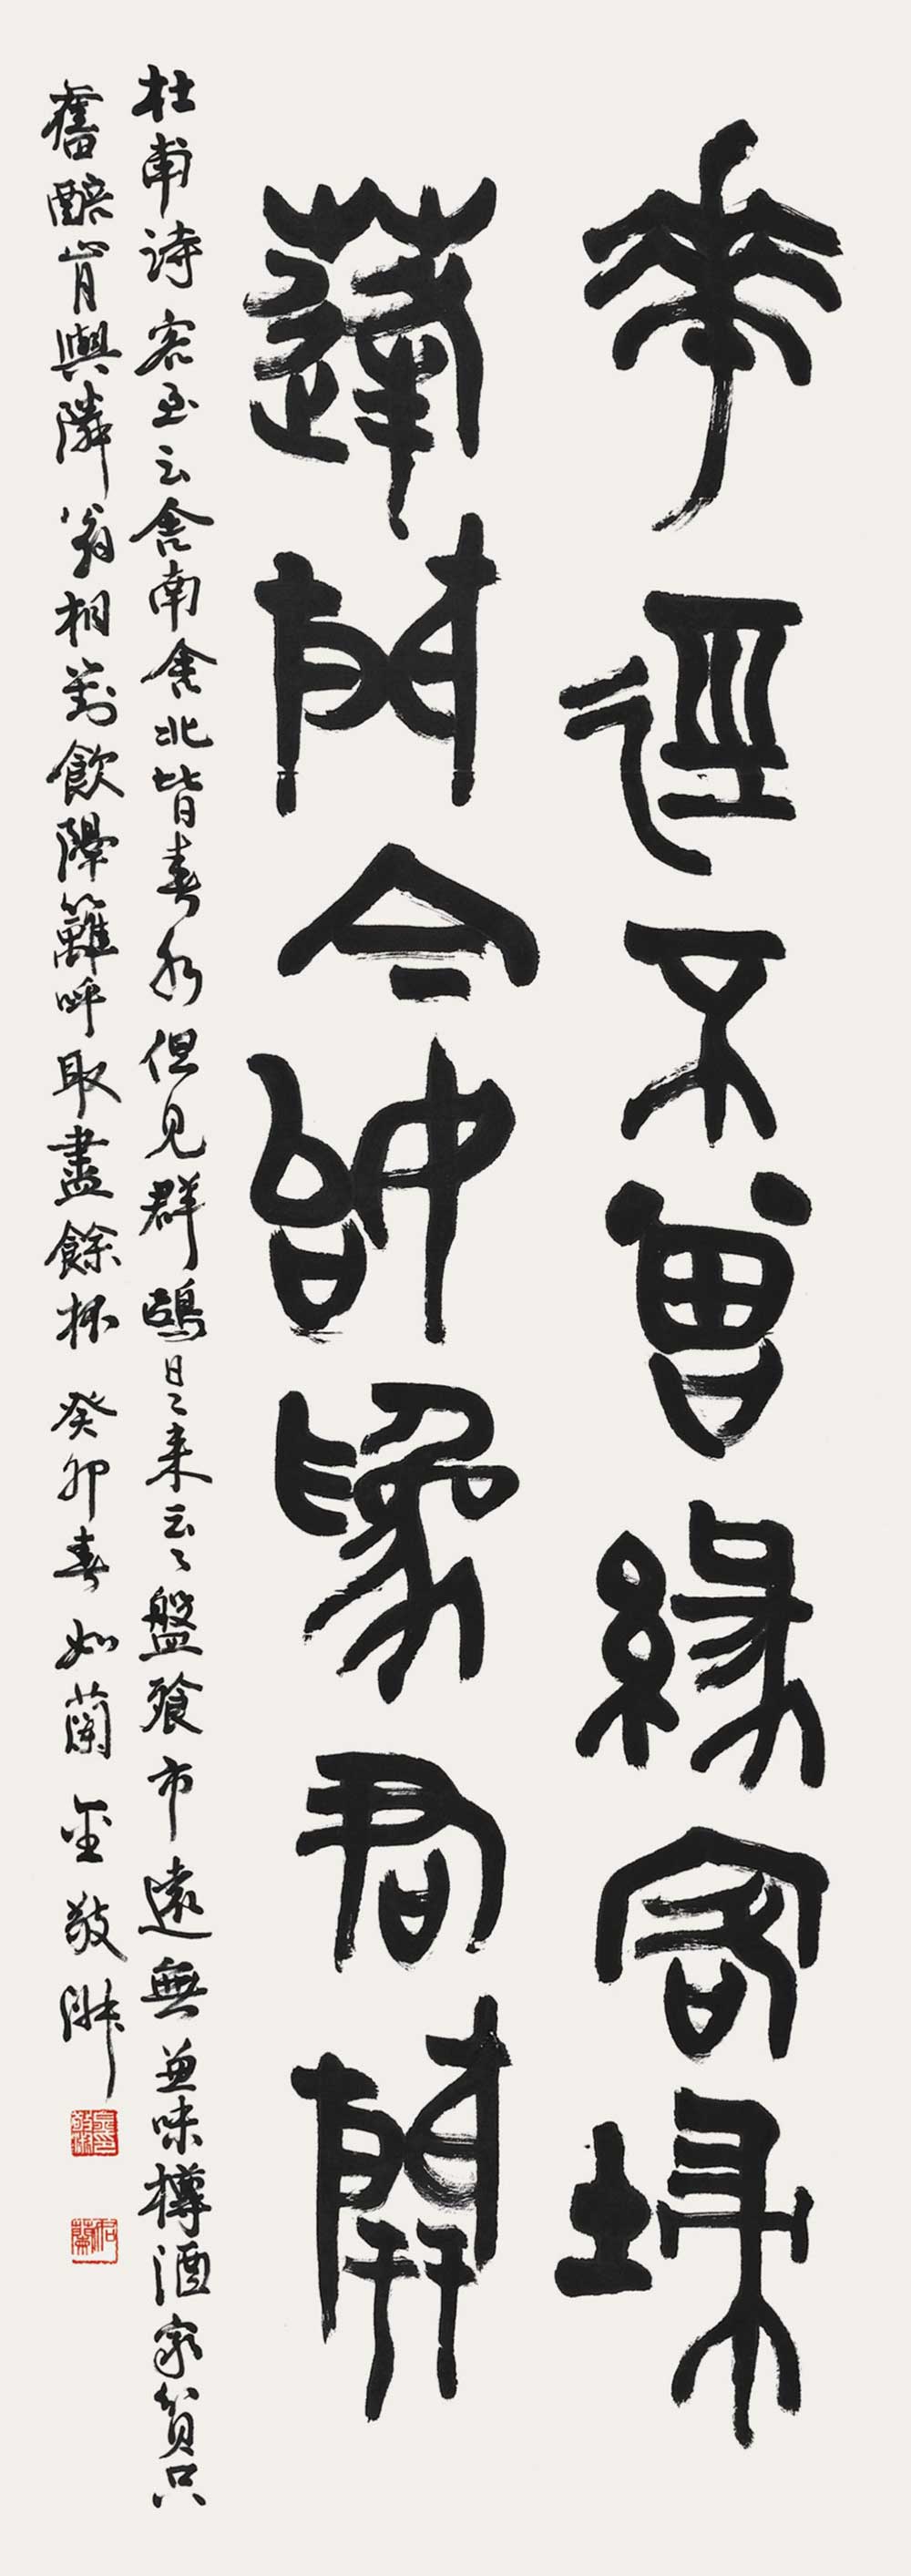 華徑不曾緣客埽
蓬門今始為君開
杜甫詩客至云舍南舍北皆春水但見群鷗日〻来云〻盤飱市遠無兼味樽酒家貧只
舊醅肯與隣翁相對飲隔籬呼取盡餘杯 癸卯春 如蘭 金敬
如蘭